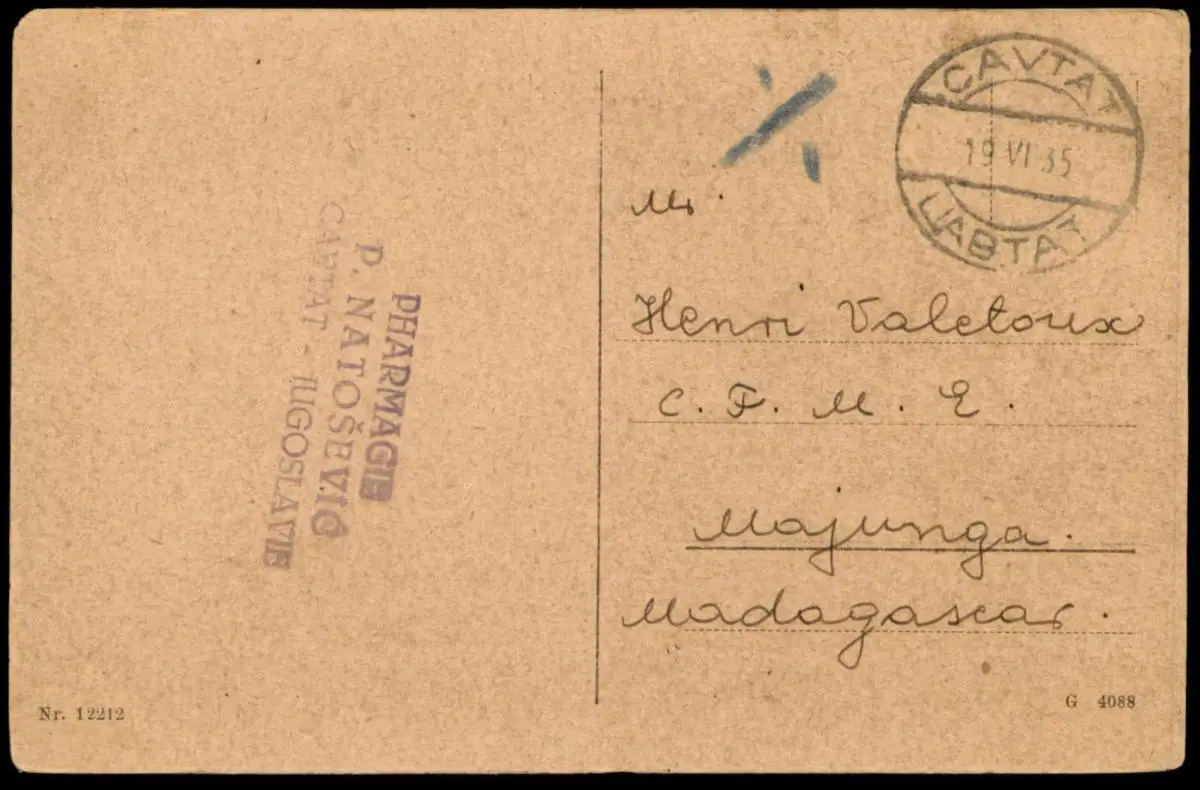 PHARMACIE
P. NATOŠEVIĆ
CAVTAT - JUGOSLAVIE
Nr. 12212
CAVTAT
19 VI 35
ЦАВТАТ
Mr.
Henri Valetoux
C. F. M. E.
Majunga.
Madagascar.
G 4088